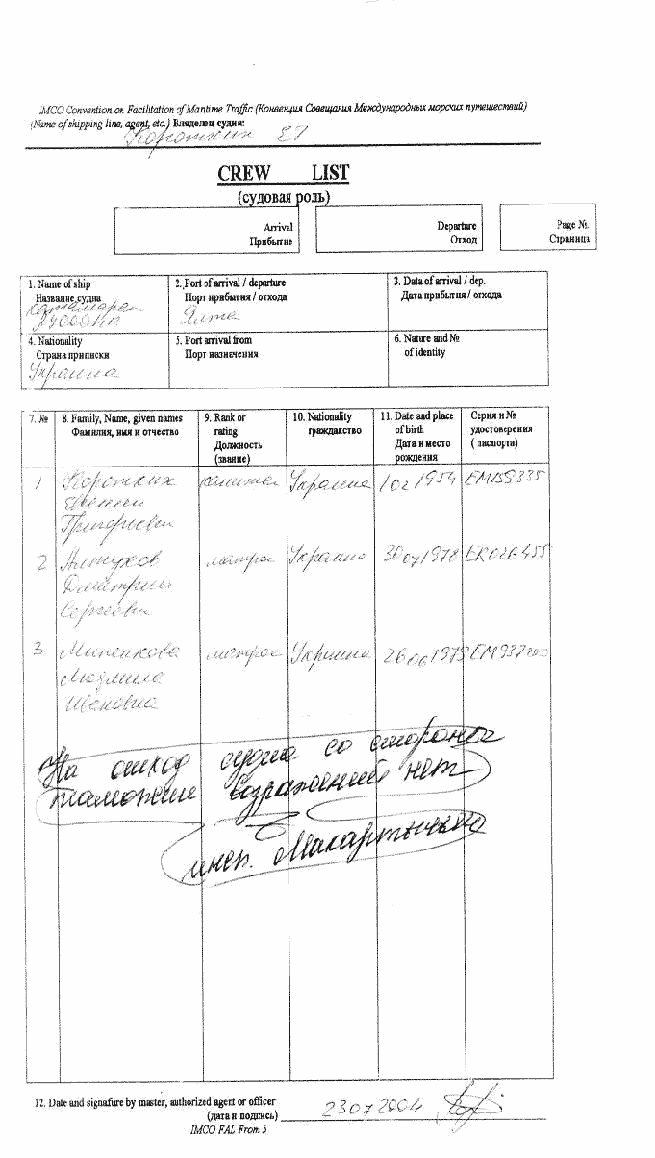 IMCO Convention on Facilitation of Maritime Traffic (Конвенция Совещания Международных морских путешествий)
(Name of shipping line, agent, etc.) Владелец судна:
Коротких ЕГ
CREW LIST
(судовая роль)
Arrival
Прибытие
Departure
Отход
Page №.
Страница
1. Name of ship
Название судна
катамаран
2. Port of arrival / departure
Порт прибытия / отхода
Ялта
3. Data of arrival / dep.
Дата прибытия / отхода
4. Nationality
Страна приписки
Украина
5. Port arrival from
Порт назначения
6. Nature and №
of identity
7. №
8. Family, Name, given names
Фамилия, имя и отчество
9. Rank or
rating
Должность
(звание)
10. Nationality
гражданство
11. Date and place
of birth
Дата и место
рождения
Серия и №
удостоверения
( паспорта)
1 Коротких капитан Украина 1954
Евгений
Григорьевич
2 матрос Украина 30 07 1978
Дмитрий
Сергеевич
3 матрос Украина 26 1979
Людмила
Ивановна
На отход судна со стороны
таможни возражений нет
инсп.
12. Date and signature by master, authorized agent or officer
(дата и подпись) 23 07 2004
IMCO FAL From 5